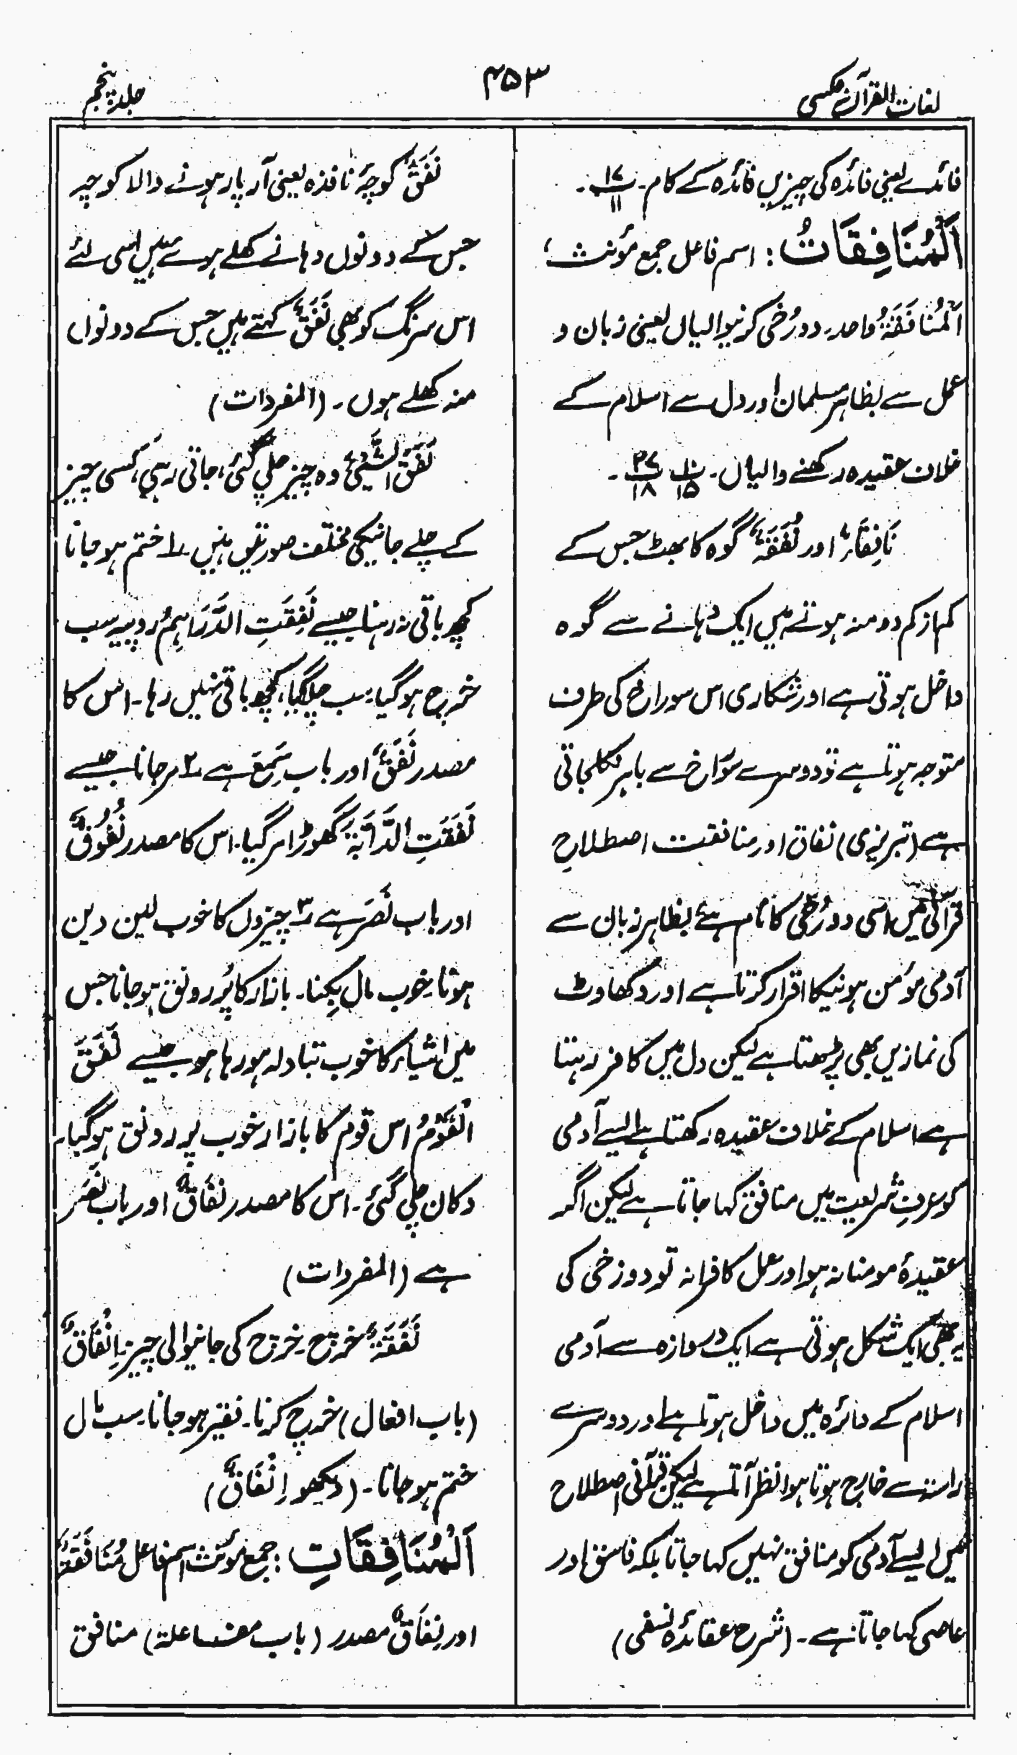 لغات القرآن عکسی
۴۵۳
جلد پنجم
فائدے یعنی فائدہ کی چیزیں فائدہ کے کام۔ پ۱۷/۱۱۔
اَلْمُنَافِقَاتُ: اسم فاعل جمع مؤنث،
اَلْمُنَافِقَۃُ واحد۔ دو رُخی کرنیوالیاں یعنی زبان و
عمل سے بظاہر مسلمان اور دل سے اسلام کے
خلاف عقیدہ رکھنے والیاں۔ پ۱۰/۱۵ پ۲۷/۱۸۔
نَافِقَاءُ اور نُفَقَۃٌ گوہ کا بھٹ جس کے
کم از کم دو منہ ہوتے ہیں ایک دہانے سے گوہ
داخل ہوتی ہے اور شکاری اس سوراخ کی طرف
متوجہ ہوتا ہے تو دوسرے سوراخ سے باہر نکل جاتی
ہے (تبریزی) نفاق اور منافقت اصطلاحِ
قرآنی میں اسی دو رُخی کا نام ہے بظاہر زبان سے
آدمی مؤمن ہونیکا اقرار کرتا ہے اور دکھاوٹ
کی نمازیں بھی پڑھتا ہے لیکن دل میں کافر رہتا
ہے اسلام کے خلاف عقیدہ رکھتا ہے ایسے آدمی
کو عرفِ شریعت میں منافق کہا جاتا ہے لیکن اگر
عقیدہ مومنانہ ہو اور عمل کافرانہ تو دو رخی کی
یہ بھی ایک شکل ہوتی ہے ایک دروازہ سے آدمی
اسلام کے دائرہ میں داخل ہوتا ہے اور دوسرے
راستہ سے خارج ہوتا ہوا نظر آتا ہے لیکن قرآنی اصطلاح
میں ایسے آدمی کو منافق نہیں کہا جاتا بلکہ فاسق اور
عاصی کہا جاتا ہے۔ (شرح عقائد نسفی)
نَفَقٌ کوچۂ نافذہ یعنی آر پار ہونے والا کوچہ
جس کے دونوں دہانے کھلے ہوئے ہیں اسی لئے
اس سرنگ کو بھی نَفَقٌ کہتے ہیں جس کے دونوں
منہ کھلے ہوں۔ (المفردات)
نَفَقَ الشَّیْءُ وہ چیز چلی گئی، جاتی رہی، کسی چیز
کے چلے جانیکی مختلف صورتیں ہیں ۱؎ ختم ہو جانا
کچھ باقی نہ رہنا جیسے نَفِقَتِ الدَّرَاہِمُ روپیہ سب
خرچ ہو گیا، سب چلا گیا، کچھ باقی نہیں رہا۔ اس کا
مصدر نَفَقٌ اور باب سَمِعَ ہے ۲؎ مر جانا جیسے
نَفَقَتِ الدَّابَّۃُ گھوڑا مر گیا۔ اس کا مصدر نُفُوْقٌ
اور باب نَصَرَ ہے ۳؎ چیزوں کا خوب لین دین
ہونا خوب مال بِکنا۔ بازار کا پُر رونق ہو جانا جس
میں اشیاء کا خوب تبادلہ ہو رہا ہو جیسے نَفَقَ
الْقَوْمُ اس قوم کا بازار خوب پر رونق ہو گیا،
دکان چلی گئی۔ اس کا مصدر نِفَاقٌ اور باب نَصَرَ
ہے (المفردات)
نَفَقَۃٌ خرچ۔ خرچ کی جانیوالی چیز۔ اِنْفَاقٌ
(باب افعال) خرچ کرنا۔ فقیر ہو جانا۔ سب مال
ختم ہو جانا۔ (دیکھو اِنْفَاقٌ)
اَلْمُنَافِقَاتِ: جمع مؤنث اسم فاعل مُنَافَقَۃٌ
اور نِفَاقٌ مصدر (باب مفاعلۃ) منافق